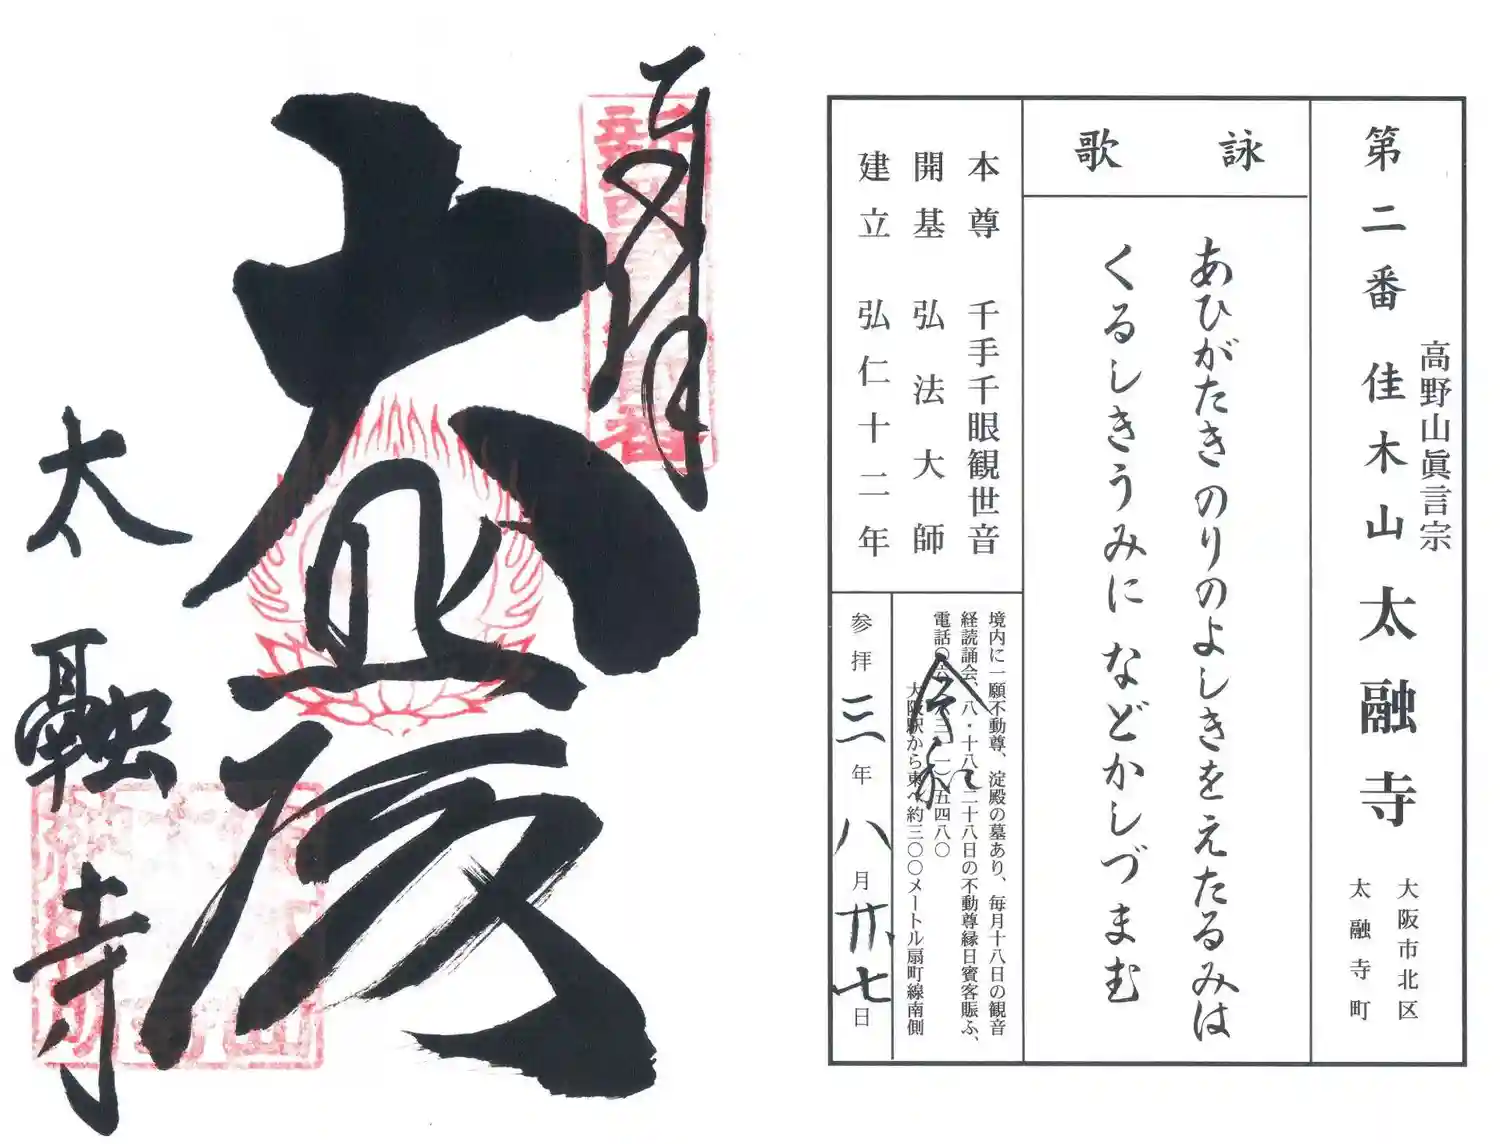 奉拝
大悲殿
太融寺
第二番 佳木山 太融寺
高野山眞言宗
大阪市北区
太融寺町
詠歌
あひがたきのりのよしきをえたるみは
くるしきうみになどかしづまむ
本尊 千手千眼観世音
開基 弘法大師
建立 弘仁十二年
境内に一願不動尊、淀殿の墓あり、毎月十八日の観音
経読誦会、八・十八・二十八日の不動尊縁日賓客賑ふ、
電話
大阪駅から東へ約三〇〇メートル扇町線南側
令和
参拝 三年 八月 廿七日